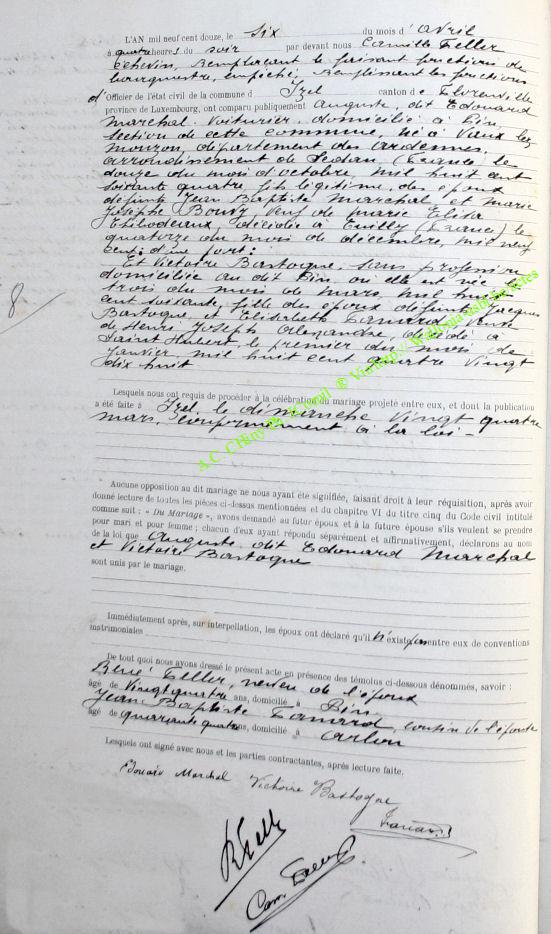 L'AN mil neuf cent douze, le six du mois d'avril
à quatre heures du soir par devant nous Camille Feller
Echevin, remplaçant le faisant fonctions de
bourgmestre, empêché, remplissant les fonctions
d'Officier de l'état civil de la commune d'Izel canton de Florenville
province de Luxembourg, ont comparu publiquement Auguste, dit Edouard
Marchal, voiturier, domicilié à
section de cette commune, né à Vaux lez
Mouzon, département des Ardennes,
arrondissement de Sedan, (France) le
douze du mois d'octobre, mil huit cent
soixante quatre, fils légitime des époux
défunts Jean Baptiste Marchal et Marie
Josèphe veuf de Marie Elisa
décédée à (France) le
quatorze du mois de décembre, mil neuf
cent
Et Victoire Bastogne, sans profession
domiciliée au dit où elle est née le
trois du mois de mars, mil huit
cent soixante, fille des époux défunts Jacques
Bastogne et Elisabeth veuve
de Henri Joseph Alexandre décédé à
Saint Hubert, le premier du mois de
janvier, mil huit cent quatre vingt
dix huit
8
Lesquels nous ont requis de procéder à la célébration du mariage projeté entre eux, et dont la publication
a été faite à Izel, le dimanche vingt quatre
mars, conformément à la loi -
Aucune opposition au dit mariage ne nous ayant été signifiée, faisant droit à leur réquisition, après avoir
donné lecture de toutes les pièces ci-dessus mentionnées et du chapitre VI du titre cinq du Code civil intitulé
comme suit : « Du Mariage », avons demandé au futur époux et à la future épouse s'ils veulent se prendre
pour mari et pour femme ; chacun d'eux ayant répondu séparément et affirmativement, déclarons au nom
de la loi que Auguste, dit Edouard Marchal
et Victoire Bastogne
sont unis par le mariage.
Immédiatement après, sur interpellation, les époux ont déclaré qu'il n'existe pas entre eux de conventions
matrimoniales
De tout quoi nous avons dressé le présent acte en présence des témoins ci-dessous dénommés, savoir :
René Feller, neveu de l'époux
âgé de vingt quatre ans, domicilié à
Jean Baptiste cousin de l'épouse
âgé de quarante quatre ans, domicilié à Arlon
Lesquels ont signé avec nous et les parties contractantes, après lecture faite.
Edouard Marchal Victoire Bastogne
R Feller
Cam. Feller